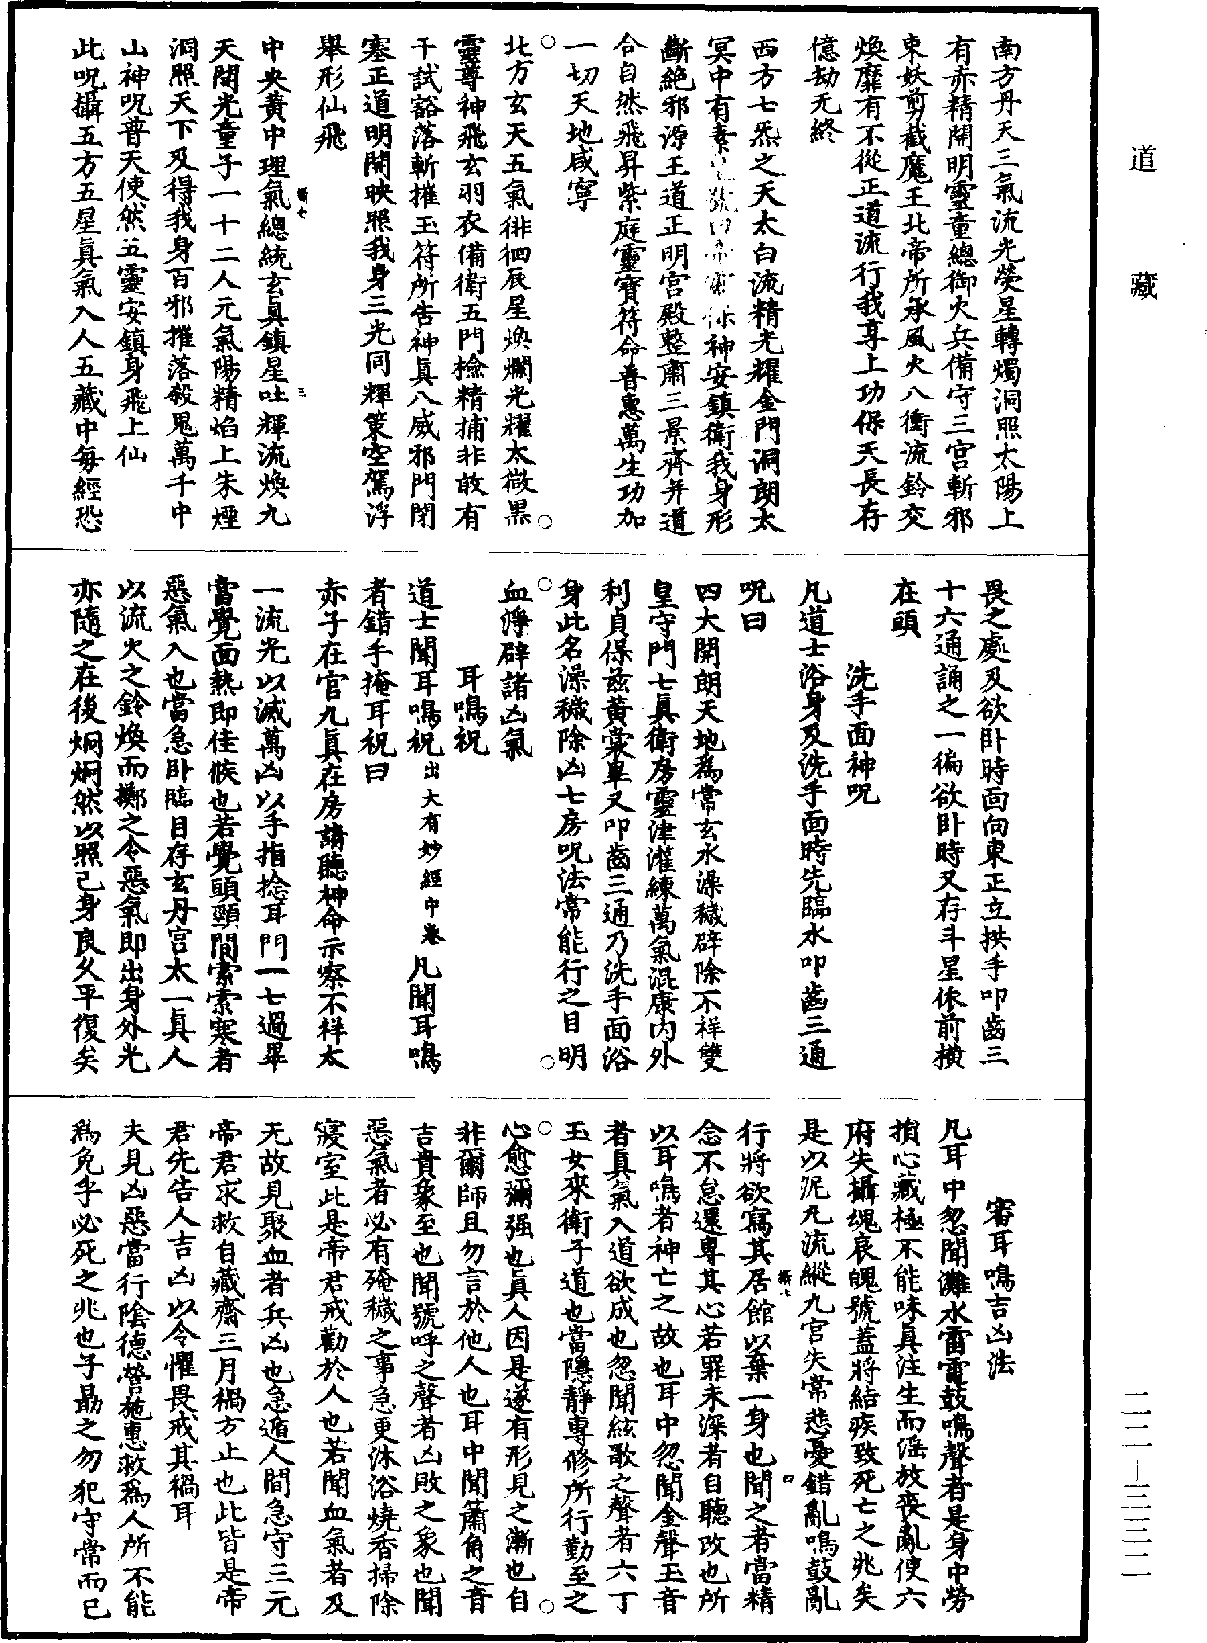 道藏
二二—三三二
南方丹天三氣流光熒星轉燭洞照太陽上
有赤精開明靈童總御火兵備守三宮斬邪
束妖剪截魔王北帝所承風火八衝流鈴交
煥靡有不從正道流行我享上功保天長存
億劫无終
西方七炁之天太白流精光耀金門洞朗太
冥中有素神安鎮衛我身形
斷絕邪源王道正明宮殿整肅三景齊并道
合自然飛昇紫庭靈寶符命普惠萬生功加
一切天地咸寧
北方玄天五氣徘徊辰星煥爛光耀太微黑
靈尊神飛玄羽衣備衛五門檢精捕非敢有
干試豁落斬摧玉符所告神真八威邪門閉
塞正道明開映照我身三光同輝策空駕浮
舉形仙飛
中央黃中理氣總統玄真鎮星吐輝流煥九
天開光童子一十二人元氣陽精焰上朱煙
洞照天下及得我身百邪摧落殺鬼萬千中
山神呪普天使然五靈安鎮身飛上仙
此呪攝五方五星真氣入人五藏中每經恐
畏之處及欲卧時面向東正立拱手叩齒三
十六通誦之一徧欲卧時又存斗星依前横
在頭
洗手面神呪
凡道士浴身及洗手面時先臨水叩齒三通
呪曰
四大開朗天地爲常玄水澡穢辟除不祥雙
皇守門七真衛房靈津灌練萬氣混康内外
利貞保兹黃裳畢又叩齒三通乃洗手面浴
身此名澡穢除凶七房呪法常能行之目明
血淨辟諸凶氣
耳鳴祝
道士聞耳鳴祝出大有妙經中卷凡聞耳鳴
者錯手掩耳祝曰
赤子在宫九真在房請聽神命示察不祥太
一流光以滅萬凶以手指捻耳門一七過畢
當覺面熱即佳候也若覺頭頸間索索寒者
惡氣入也當急卧臨目存玄丹宫太一真人
以流火之鈴煥而擲之令惡氣即出身外光
亦隨之在後炯炯然以照己身良久平復矣
審耳鳴吉凶法
凡耳中忽聞灘水雷電鼓鳴聲者是身中勞
損心藏極不能味真注生而淫放喪亂使六
府失攝魂哀魄號蓋將結疾致死亡之兆矣
是以泥丸流縱九宫失常悲憂錯亂鳴鼓亂
行將欲寫其居館以棄一身也聞之者當精
念不怠還專其心若罪未深者自聽改也所
以耳鳴者神亡之故也耳中忽聞金聲玉音
者真氣入道欲成也忽聞絃歌之聲者六丁
玉女來衛子道也當隱静專修所行勤至之
心愈彌强也真人因是遂有形見之漸也自
非爾師且勿言於他人也耳中聞簫角之音
吉貴象至也聞號呼之聲者凶敗之象也聞
惡氣者必有殗穢之事急更沐浴燒香掃除
寢室此是帝君戒勸於人也若聞血氣者及
无故見聚血者兵凶也急遁人間急守三元
帝君求救自藏齋三月禍方止也此皆是帝
君先告人吉凶以令懼畏戒其禍耳
夫見凶惡當行陰德營施惠救爲人所不能
爲免乎必死之兆也子勗之勿犯守常而已